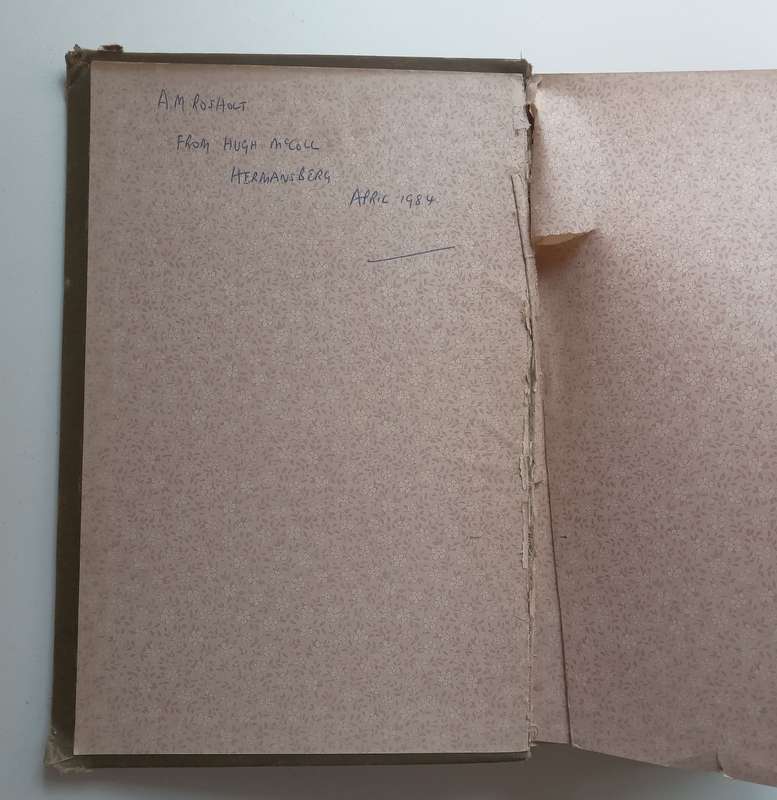 A M ROSHOLT
FROM HUGH McCOLL
HERMANSBERG
APRIL 1984